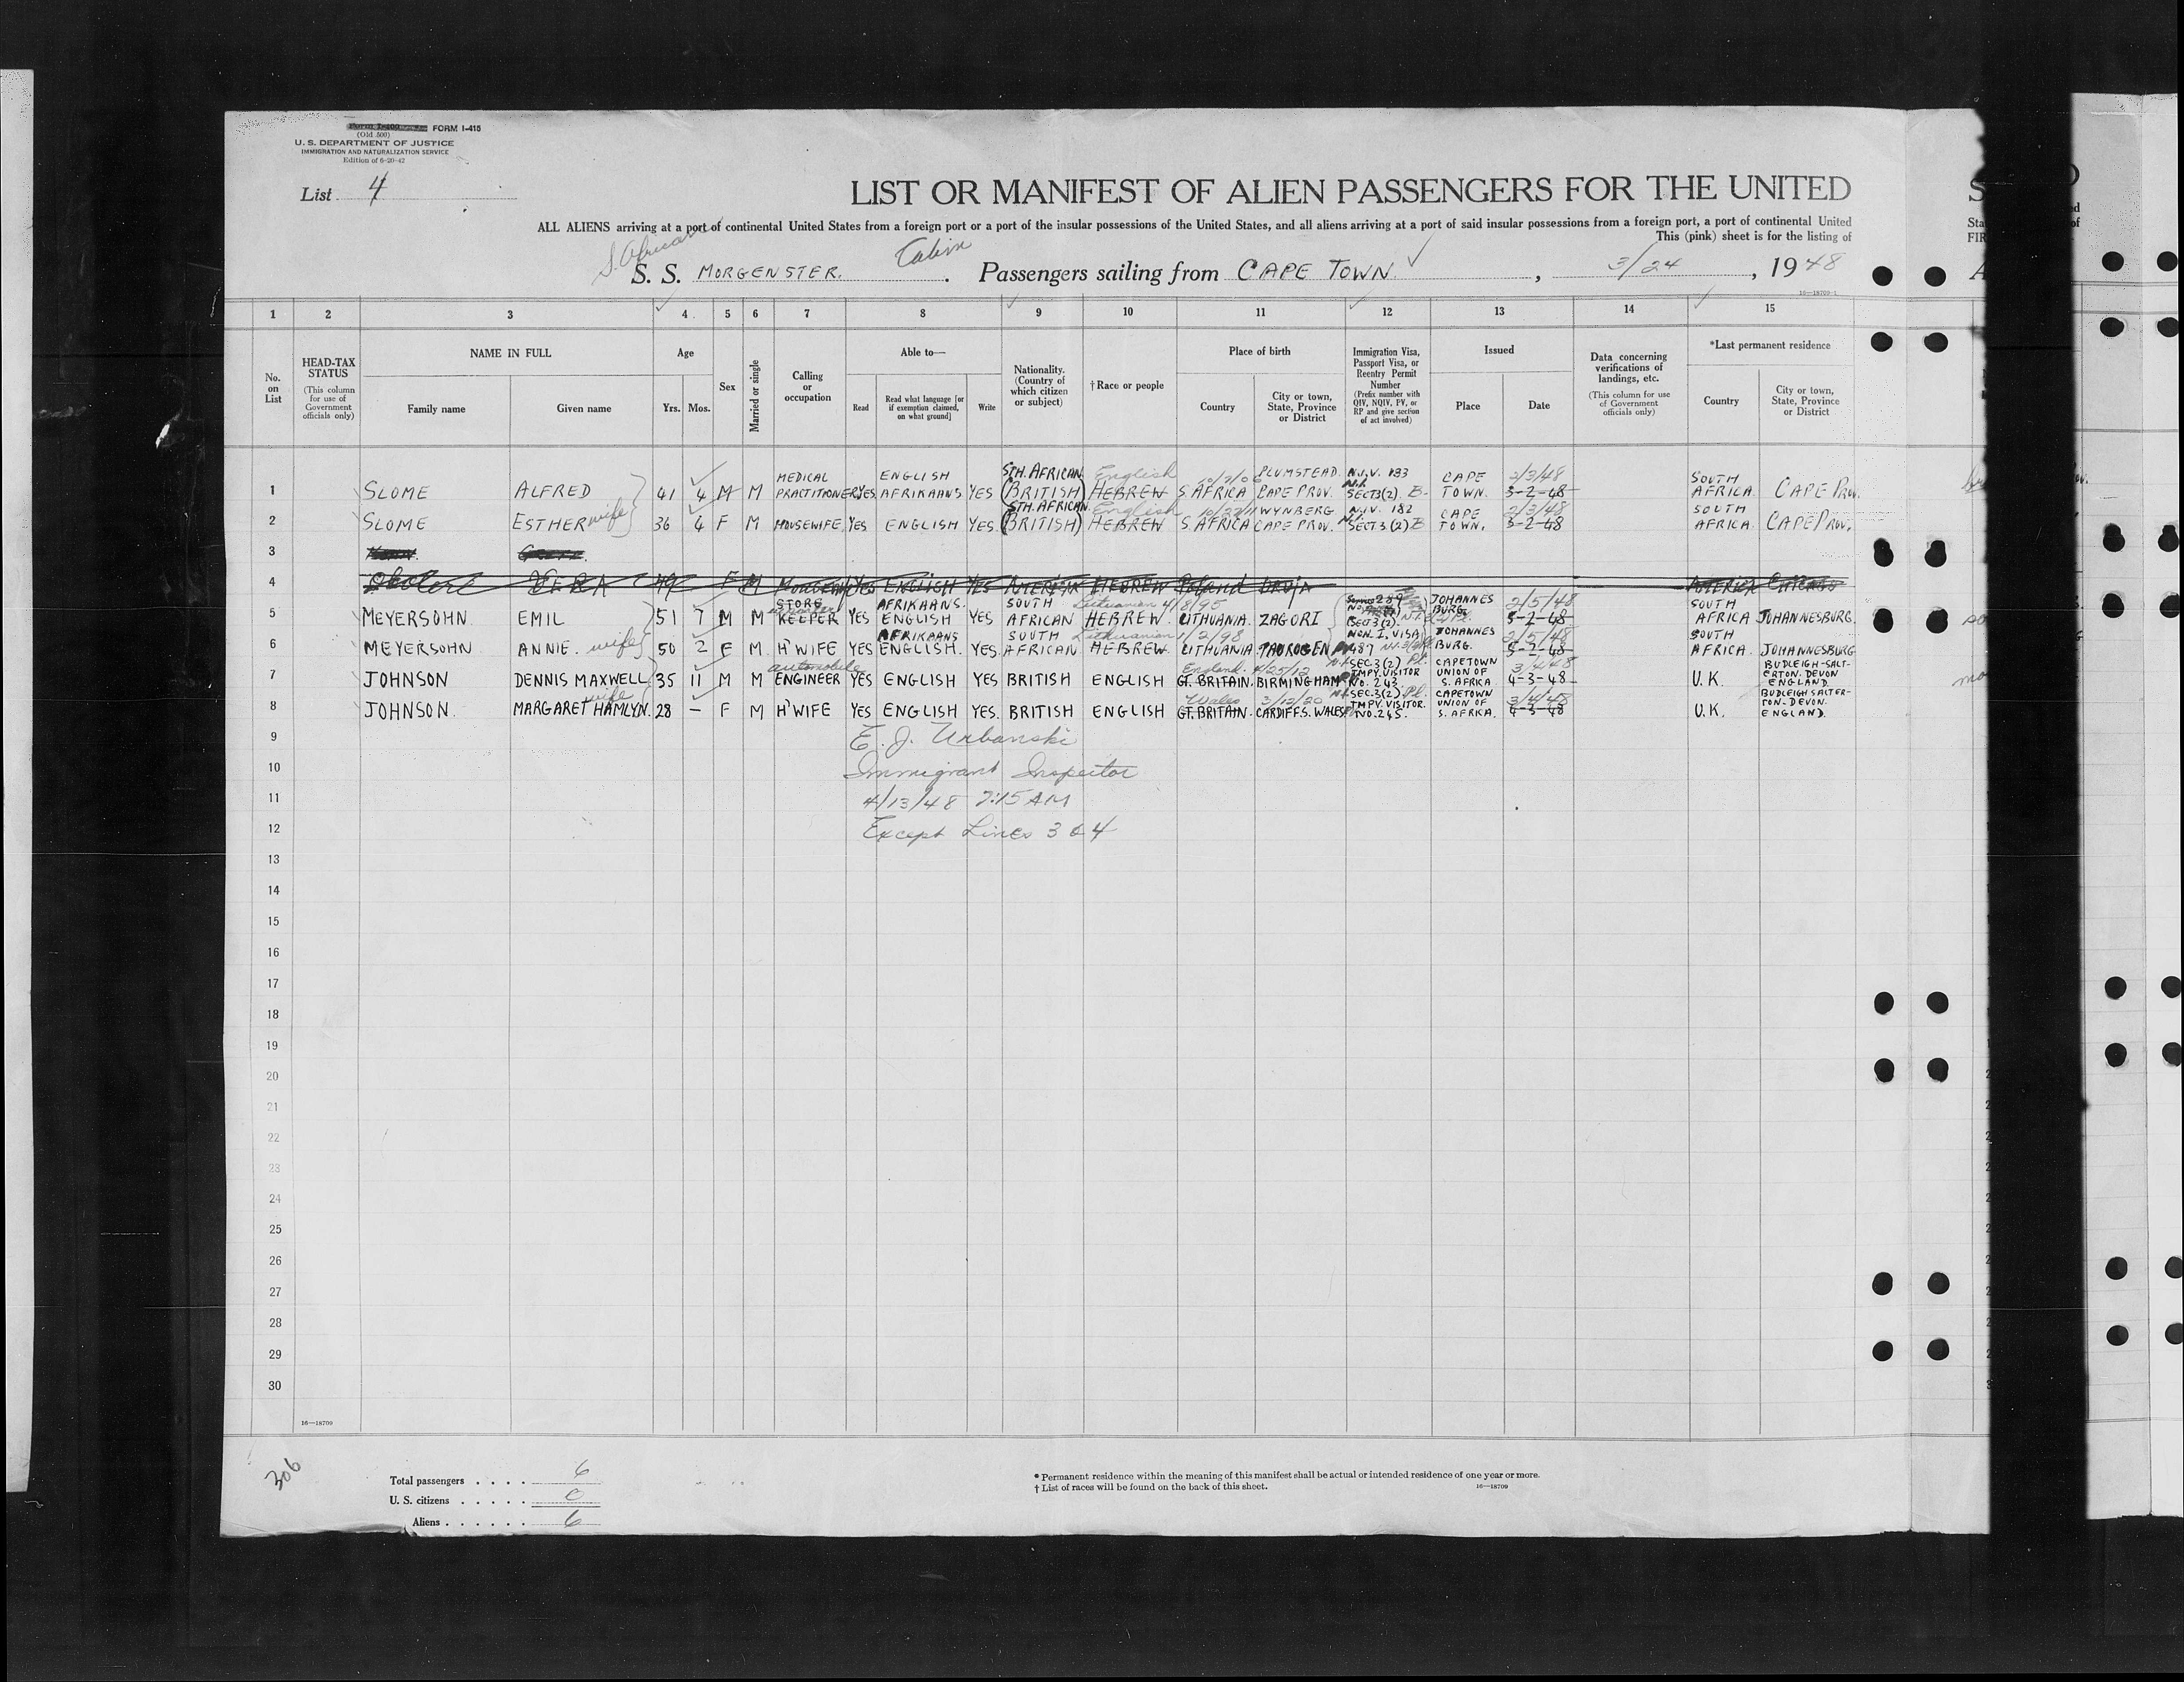 FORM I-415
(Old 500)
U. S. DEPARTMENT OF JUSTICE
IMMIGRATION AND NATURALIZATION SERVICE
Edition of 6-20-42
List 4
LIST OR MANIFEST OF ALIEN PASSENGERS FOR THE UNITED
ALL ALIENS arriving at a port of continental United States from a foreign port or a port of the insular possessions of the United States, and all aliens arriving at a port of said insular possessions from a foreign port, a port of continental United
This (pink) sheet is for the listing of
S. African Cabin
S. S. MORGENSTER. Passengers sailing from CAPE TOWN, 3/24, 1948
16—18709-1
1 2 3 4 5 6 7 8 9 10 11 12 13 14 15
No. on List
HEAD-TAX STATUS (This column for use of Government officials only)
NAME IN FULL Family name Given name
Age Yrs. Mos.
Sex
Married or single
Calling or occupation
Able to— Read Read what language [or if exemption claimed, on what ground] Write
Nationality. (Country of which citizen or subject)
†Race or people
Place of birth Country City or town, State, Province or District
Immigration Visa, Passport Visa, or Reentry Permit Number (Prefix number with QIV, NQIV, PV, or RP and give section of act involved)
Issued Place Date
Data concerning verifications of landings, etc. (This column for use of Government officials only)
*Last permanent residence Country City or town, State, Province or District
1 SLOME ALFRED 41 4 M M MEDICAL PRACTITIONER YES ENGLISH AFRIKAANS YES STH. AFRICAN (BRITISH) English HEBREW S AFRICA PLUMSTEAD CAPE PROV. N.I.V. 183 SECT3(2) CAPE TOWN. 2/3/48 3-2-48 SOUTH AFRICA CAPE PROV.
2 SLOME ESTHER wife 36 4 F M HOUSEWIFE YES ENGLISH YES. STH. AFRICAN (BRITISH) English HEBREW S AFRICA 10/22/11 WYNBERG CAPE PROV. N.I.V. 182 SECT 3(2) CAPE TOWN. 2/3/48 3-2-48 SOUTH AFRICA CAPE PROV.
3
4 VERA 49 F M YES ENGLISH YES HEBREW Poland CHICAGO
5 MEYERSOHN EMIL 51 7 M M STORE KEEPER YES AFRIKAANS. ENGLISH YES SOUTH AFRICAN Lithuanian HEBREW. 4/8/95 LITHUANIA. ZAGORI 289 SECT 3(2). JOHANNES BURG. 2/5/48 5-2-48 SOUTH AFRICA JOHANNESBURG.
6 MEYERSOHN ANNIE. wife 50 2 F M H'WIFE YES AFRIKAANS ENGLISH. YES. SOUTH AFRICAN Lithuanian HEBREW. 1/2/98 LITHUANIA TAUROGEN NON. I, VISA 487 JOHANNES BURG. 2/5/48 5-2-48 SOUTH AFRICA. JOHANNESBURG
7 JOHNSON DENNIS MAXWELL 35 11 M M automobile ENGINEER YES ENGLISH YES BRITISH ENGLISH England. GT. BRITAIN. 4/25/12 BIRMINGHAM SEC.3(2) TMPY. VISITOR NO. 243 CAPETOWN UNION OF S. AFRICA 3/4/48 4-3-48 U.K. BUDLEIGH-SALT-ERTON. DEVON ENGLAND.
8 JOHNSON. MARGARET HAMLYN. wife 28 – F M H'WIFE YES ENGLISH YES. BRITISH ENGLISH Wales GT. BRITAIN. 3/12/20 CARDIFF. S. WALES SEC.3(2). TMPY. VISITOR. NO. 245. CAPETOWN UNION OF S. AFRICA. 3/4/48 4-3-48 U.K. BUDLEIGH SALTER-TON-DEVON. ENGLAND.
9 E. J. Urbanski
10 Immigrant Inspector
11 4/13/48 7:15 AM
12 Except Lines 3 & 4
13
14
15
16
17
18
19
20
21
22
23
24
25
26
27
28
29
30
16—18709
306
Total passengers 6
U. S. citizens 0
Aliens 6
* Permanent residence within the meaning of this manifest shall be actual or intended residence of one year or more.
† List of races will be found on the back of this sheet.
16—18709